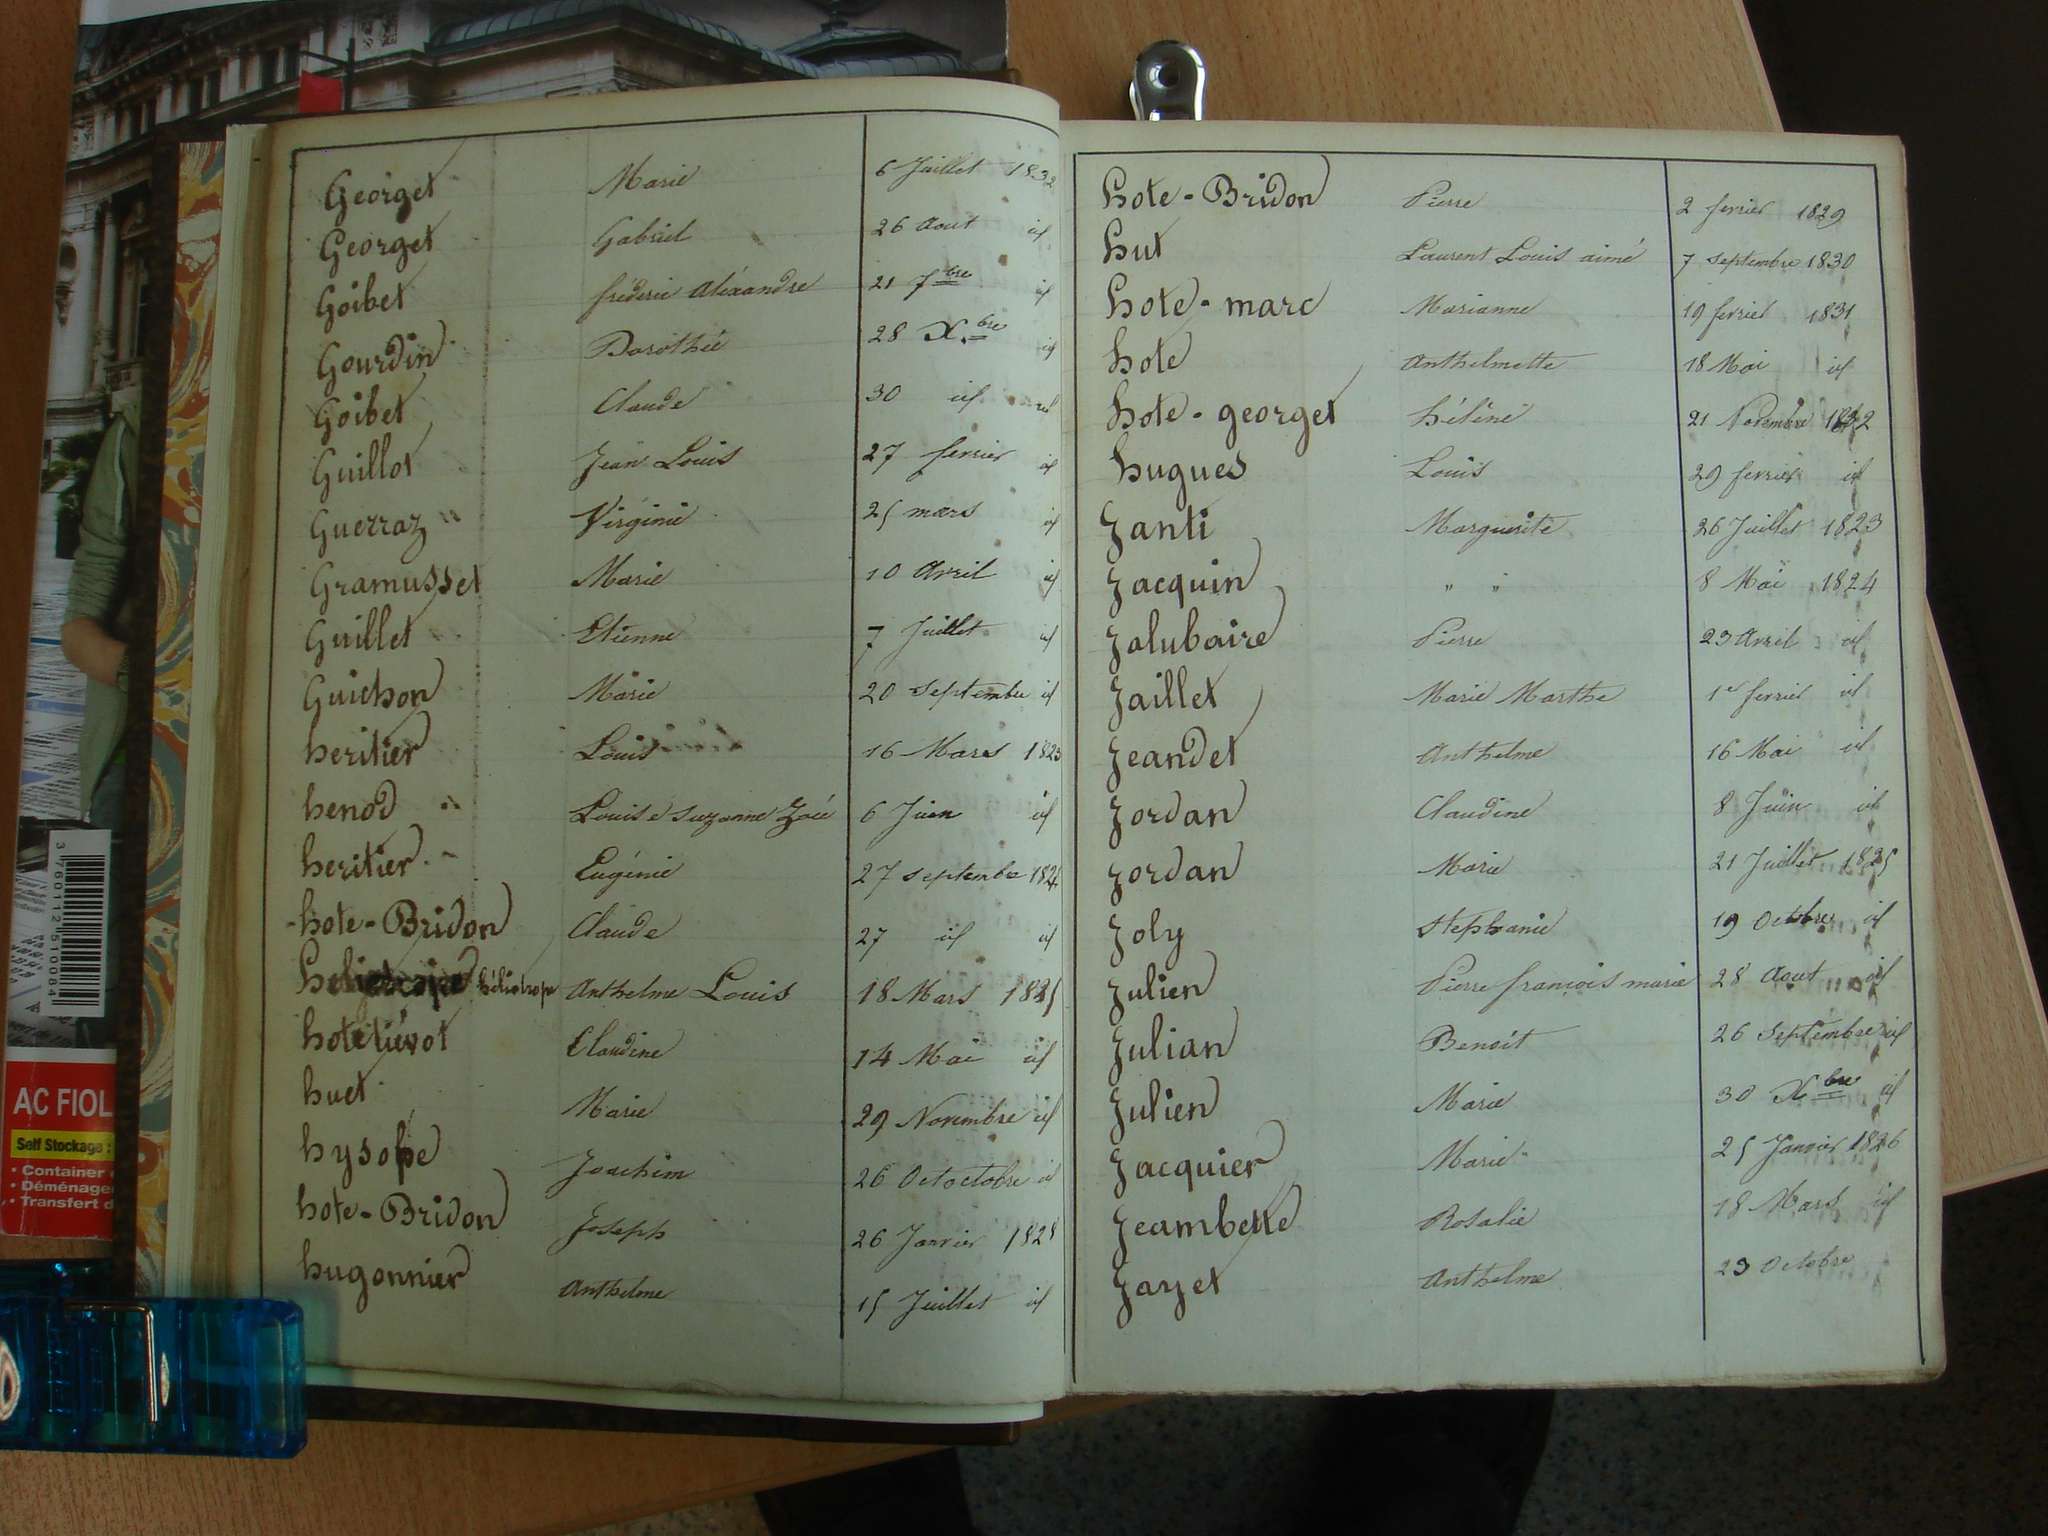 Georget Marie 6 Juillet 1832
Georget Gabriel 26 Aout id
Goibet fréderic Aléxandre 21 7bre id
Gourdin Dorothée 28 Xbre id
Goibet Claude 30 id id
Guillot Jean Louis 27 fevrier id
Guerraz Virginie 25 mars id
Gramusset Marie 10 Avril id
Guillet Etienne 7 Juillet id
Guichon Marie 20 Septembre id
heritier Louis 16 Mars 1823
henod Louise Suzanne Zoée 6 Juin id
heritier Eugénie 27 Septembre
hote-Bridon Claude 27 id id
héliotrope Anthelme Louis 18 Mars 1825
hote tiévot Claudine 14 Mai id
huet Marie 29 Novembre id
hysope Joachim 26 Octoctobre id
hote-Bridon Joseph 26 Janvier 1828
hugonnier Anthelme 15 Juillet id
hote-Bridon Pierre 2 fevrier 1829
hut Laurent Louis aimé 7 Septembre 1830
hote-marc Marianne 19 fevriel 1831
hote Anthelmette 18 Mai id
hote-georget hélène 21 Novembre
hugues Louis 29 fevrier id
Janti Marguerite 26 Juillet 1823
Jacquin " " 8 Mai 1824
Jalubaire Pierre 23 Avril id
Jaillet Marie Marthe 1er fevriel id
Jeandet Anthelme 16 Mai id
Jordan Claudine 8 Juin id
Jordan Marie 21 Juillet 1825
Joly Stephanie 19 Octobre id
Julien Pierre françois marie 28 Aout id
Julian Benoit 26 Septembre id
Julien Marie 30 Xbre id
Jacquier Marie 25 Janvier 1826
Jeambette Rosalie 18 Mars id
Jayet Anthelme 23 Octobre
3760112510084
AC FIOL
Self Stockage :
• Container
• Déménage
• Transfert d